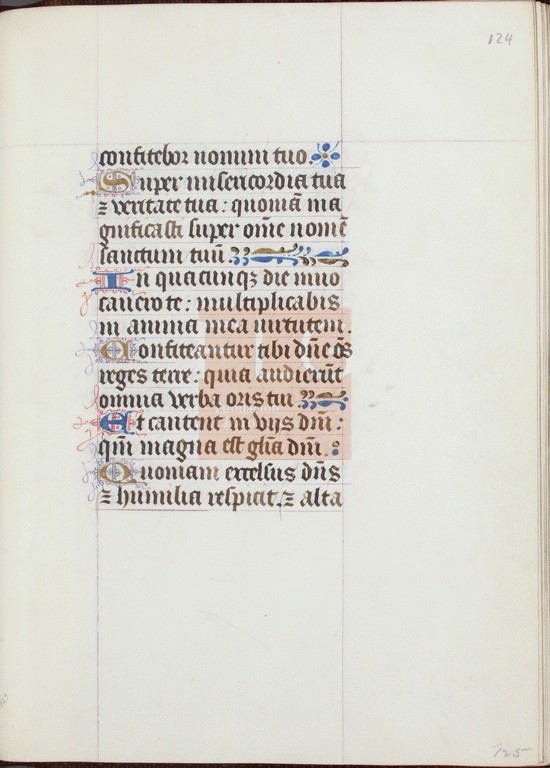 124
confitebor nomini tuo.
Super misericordia tua
⁊ veritate tua: quoniā ma
gnificasti super om̄e nomē
sanctum tuū.
In quacunqꝫ die inuo
cauero te: multiplicabis
in anima mea uirtutem.
Confiteantur tibi dn̄e oēs
reges terre: quia audierūt
omnia verba oris tui.
Et cantent in vijs dn̄i:
qm̄ magna est gl̄ia dn̄i.
Quoniam excelsus dn̄s
⁊ humilia respicit. ⁊ alta
125